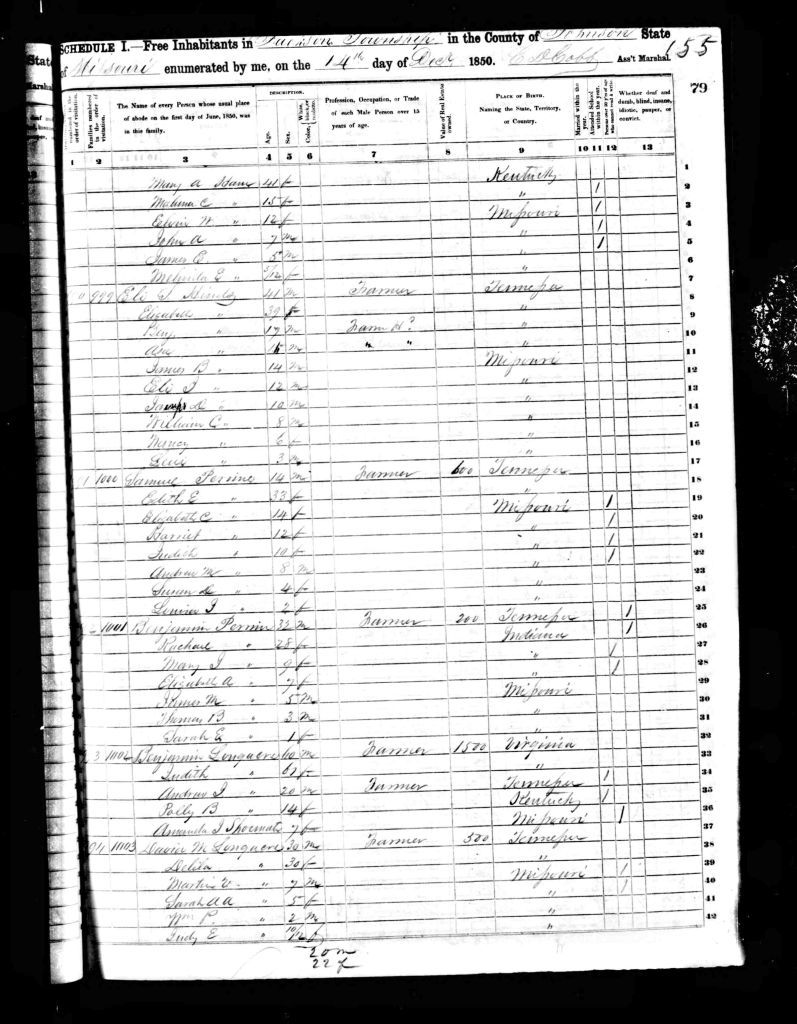 SCHEDULE I.—Free Inhabitants in Jackson Township in the County of Johnson State
of Missouri enumerated by me, on the 14th day of Decr 1850. Ass't Marshal. 155
State
Marshal.
79
DESCRIPTION.
The Name of every Person whose usual place of abode on the first day of June, 1850, was in this family.
Age. Sex.
Profession, Occupation, or Trade of each Male Person over 15 years of age.
Value of Real Estate owned.
PLACE OF BIRTH. Naming the State, Territory, or Country.
Married within the year.
Attended School within the year.
Whether deaf and dumb, blind, insane, idiotic, pauper, or convict.
1 2 3 4 5 6 7 8 9 10 11 12 13
Mary A 41 f Kentucky 1
C " 15 f " 1 2
W " 12 f Missouri 1 3
John A " 7 m " 1 4
James C. " 5 m " 1 5
Melinda E " 5/12 f " 6
999 Eli 41 m Farmer Tennessee 7
Elizabeth " 39 f " 8
Benj " 17 m Farm " 9
Asa " 15 m " " " 10
James B " 14 m Missouri 11
Eli J " 12 m " 12
Joseph D " 10 m " 13
William C " 8 m " 14
Nancy " 6 f " 15
" 3 m " 16
1000 Samuel Perrine 14 m Farmer 600 Tennessee 17
Edith E " 33 f " 18
Elizabeth C " 14 f Missouri 1 19
Harriet " 12 f " 1 20
Judith " 10 f " 1 21
Andrew M " 8 m " 1 22
Susan D " 4 f " 23
Louisa J " 2 f " 24
1001 Benjamin Perrine 32 m Farmer 200 Tennessee 1 25
Rachael " 28 f Indiana 1 26
Mary J " 9 f " 1 27
Elizabeth A " 7 f " 1 28
James M " 5 m Missouri 29
Thomas B " 3 m " 30
Sarah E " 1 f " 31
3 1102 Benjamin Longacre 60 m Farmer 1500 Virginia 32
Judith " 61 f " 33
Andrew J " 20 m Farmer Tennessee 1 34
Polly B " 14 f Kentucky 1 35
Amanda J 7 f Missouri 1 36
94 1103 David M Longacre 30 m Farmer 500 Tennessee 37
Delila " 30 f " 38
Martin V. " 7 m Missouri 1 39
Sarah A A " 5 f " 1 40
Wm P. " 2 m " 41
Judy E " 10/12 f " 42
20 m
22 f